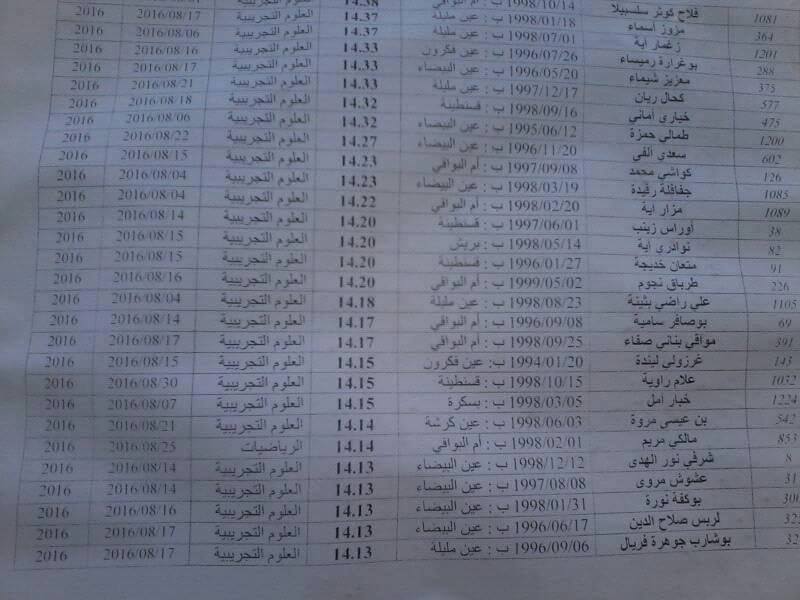 1081 فلاح كوثر سلسبيلا 1998/10/14 ب : أم البواقي 14.38
364 مزوز أسماء 1998/01/18 ب : عين مليلة 14.37 العلوم التجريبية 2016/08/17 2016
1201 زغمار آية 1998/07/01 ب : أم البواقي 14.37 العلوم التجريبية 2016/08/06 2016
288 بوغرارة رميساء 1996/07/26 ب : عين فكرون 14.33 العلوم التجريبية 2016/08/16 2016
375 معزيز شيماء 1996/05/20 ب : عين البيضاء 14.33 العلوم التجريبية 2016/08/17 2016
577 كحال ريان 1997/12/17 ب : عين مليلة 14.33 العلوم التجريبية 2016/08/21 2016
475 خباري أماني 1998/09/16 ب : قسنطينة 14.32 العلوم التجريبية 2016/08/18 2016
1200 طمالي حمزة 1995/06/12 ب : عين البيضاء 14.32 العلوم التجريبية 2016/08/06 2016
602 سعدي ألفى 1996/11/20 ب : عين البيضاء 14.27 العلوم التجريبية 2016/08/22 2016
126 كواشي محمد 1997/09/08 ب : أم البواقي 14.23 العلوم التجريبية 2016/08/15 2016
1085 جفافلة رفيدة 1998/03/19 ب : عين البيضاء 14.23 العلوم التجريبية 2016/08/04 2016
1089 مزار آية 1998/02/20 ب : أم البواقي 14.22 العلوم التجريبية 2016/08/04 2016
38 أوراس زينب 1997/06/01 ب : قسنطينة 14.20 العلوم التجريبية 2016/08/14 2016
82 نوادري آية 1998/05/14 ب : بريش 14.20 العلوم التجريبية 2016/08/15 2016
91 متعان خديجة 1996/01/27 ب : قسنطينة 14.20 العلوم التجريبية 2016/08/15 2016
226 طرباق نجوم 1999/05/02 ب : أم البواقي 14.20 العلوم التجريبية 2016/08/16 2016
1105 علي راضي بثينة 1998/08/23 ب : عين مليلة 14.18 العلوم التجريبية 2016/08/04 2016
69 بوصافر سامية 1996/09/08 ب : أم البواقي 14.17 العلوم التجريبية 2016/08/14 2016
391 موافي بناني صفاء 1998/09/25 ب : أم البواقي 14.17 العلوم التجريبية 2016/08/17 2016
143 غرزولي ليندة 1994/01/20 ب: عين فكرون 14.15 العلوم التجريبية 2016/08/15 2016
1032 علام راوية 1998/10/15 ب : قسنطينة 14.15 العلوم التجريبية 2016/08/30 2016
1224 خبار أمل 1998/03/05 ب : بسكرة 14.15 العلوم التجريبية 2016/08/07 2016
542 بن عيسى مروة 1998/06/03 ب : عين كرشة 14.14 العلوم التجريبية 2016/08/21 2016
853 مالكي مريم 1998/02/01 ب : أم البواقي 14.14 الرياضيات 2016/08/25 2016
8 شرفي نور الهدى 1998/12/12 ب : عين البيضاء 14.13 العلوم التجريبية 2016/08/14 2016
31 عشوش مروى 1997/08/08 ب : عين البيضاء 14.13 العلوم التجريبية 2016/08/14 2016
بوكفة نورة 1998/01/31 ب : عين البيضاء 14.13 العلوم التجريبية 2016/08/16 2016
32 لربس صلاح الدين 1996/06/17 ب : عين البيضاء 14.13 العلوم التجريبية 2016/08/17 2016
32 بوشارب جوهرة فريال 1996/09/06 ب : عين مليلة 14.13 العلوم التجريبية 2016/08/17 2016